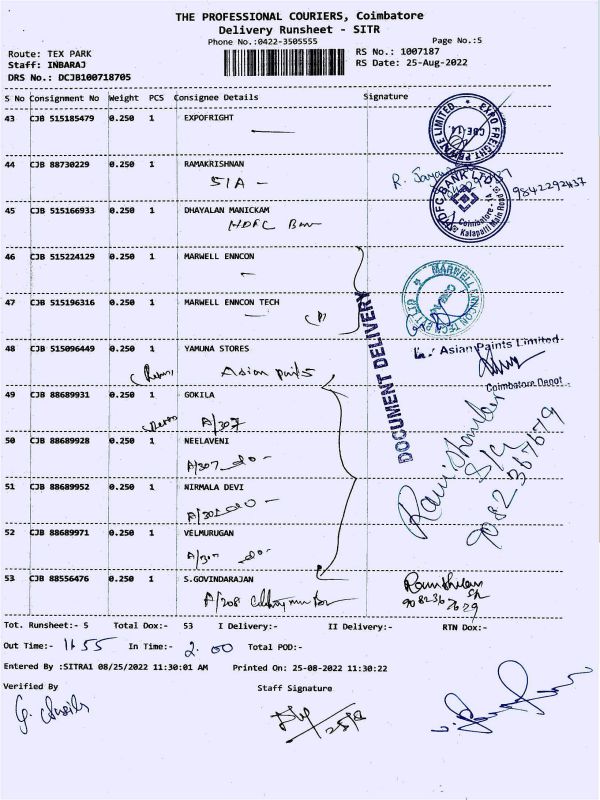 THE PROFESSIONAL COURIERS, Coimbatore
Delivery Runsheet - SITR
Phone No.:0422-3505555
Page No.:5
Route: TEX PARK
RS No.: 1007187
Staff: INBARAJ
RS Date: 25-Aug-2022
DRS No.: DCJB100718705
S No Consignment No Weight PCS Consignee Details Signature
43 CJB 515185479 0.250 1 EXPOFRIGHT
44 CJB 88730229 0.250 1 RAMAKRISHNAN
9842292437
SIA -
45 CJB 515166933 0.250 1 DHAYALAN MANICKAM
HDFC
HDFC BANK LTD
Coimbatore
Kalapatti Main Road
46 CJB 515224129 0.250 1 MARWELL ENNCON
MARWELL ENNCON TECH
47 CJB 515196316 0.250 1 MARWELL ENNCON TECH
DOCUMENT DELIVERY
48 CJB 515096449 0.250 1 YAMUNA STORES
Asian Paints Limited
Asian paints
Coimbatore Depot
49 CJB 88689931 0.250 1 GOKILA
A/307
50 CJB 88689928 0.250 1 NEELAVENI
A/307 -do-
9082367679
51 CJB 88689952 0.250 1 NIRMALA DEVI
-do-
52 CJB 88689971 0.250 1 VELMURUGAN
-do-
53 CJB 88556476 0.250 1 S.GOVINDARAJAN
A/208
Tot. Runsheet:- 5 Total Dox:- 53 I Delivery:- II Delivery:- RTN Dox:-
Out Time:- 11.55 In Time:- 2.00 Total POD:-
Entered By :SITRA1 08/25/2022 11:30:01 AM Printed On: 25-08-2022 11:30:22
Verified By
Staff Signature